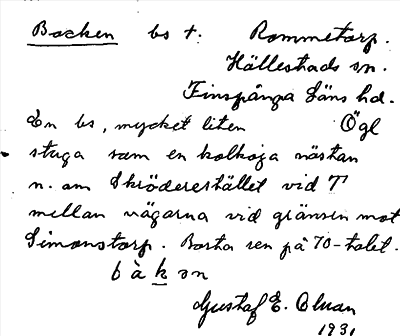 Backen bs t. Rommetorp.
Hällestads sn.
Finspånga läns hd.
En bs, mycket liten Ögl
stuga som en kolkoja nästan
n. om Skröderestället vid T
mellan vägarna vid gränsen mot
Simonstorp. Borta ren på 70-talet.
b à k ən
Gustaf E. Oluan
1931